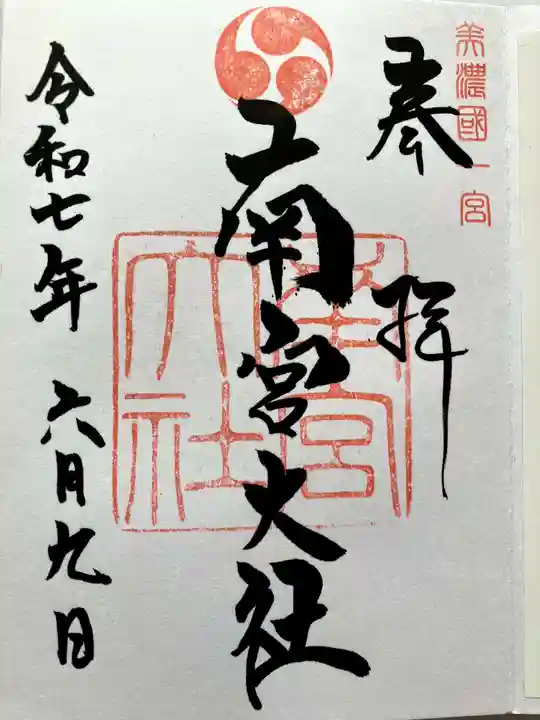 美濃國一宮
奉拝
南宮大社
南宮大社
令和七年 六月九日